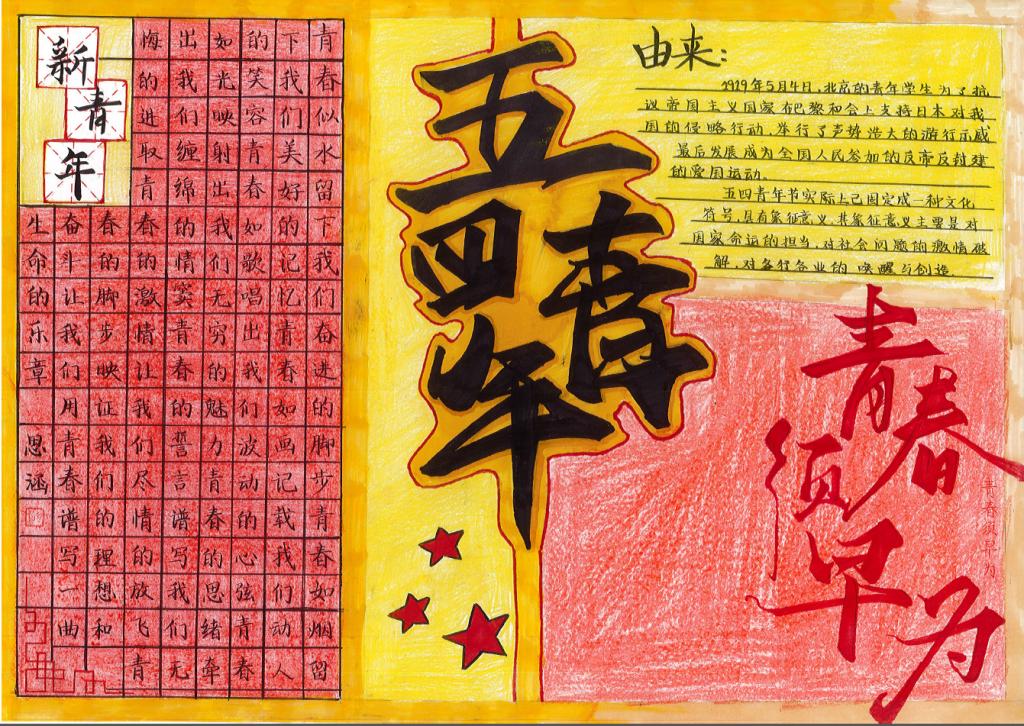 新青年
青春似水留下我们奋进的脚步青春如烟留
下我们美好的记忆青春如画记载我们动人
的笑容青春如歌唱出我们波动的心弦青春
如光映射出我们无穷的魅力青春的思绪牵
出我们缠绵的情窦青春的誓言谱写我们无
悔的进取青春的激情让我们尽情的放飞青
春的脚步映证我们的理想和
奋斗让我们用青春谱写一曲
生命的乐章
思涵
五四
青年
由来:
1919年5月4日,北京的青年学生为了抗
议帝国主义国家在巴黎和会上支持日本对我
国的侵略行动,举行了声势浩大的游行示威
最后发展成为全国人民参加的反帝反封建
的爱国运动.
五四青年节实际上已固定成一种文化
符号,具有象征意义,其象征意义主要是对
国家命运的担当,对社会问题的激情破
解,对各行各业的唤醒与创造
青春
须早为
青春须早为